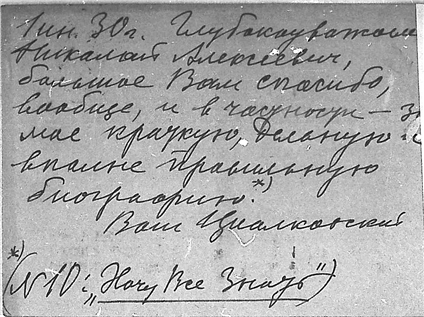 1 ин. 30 г. Глубокоуважаем
Николай Алексеевич,
большое Вам спасибо,
вообще, и в частности – за
мою краткую, дельную и
вполне правильную
биографию.*)
Ваш Циалковский
*)
(N 10: „Хочу Все Знать")